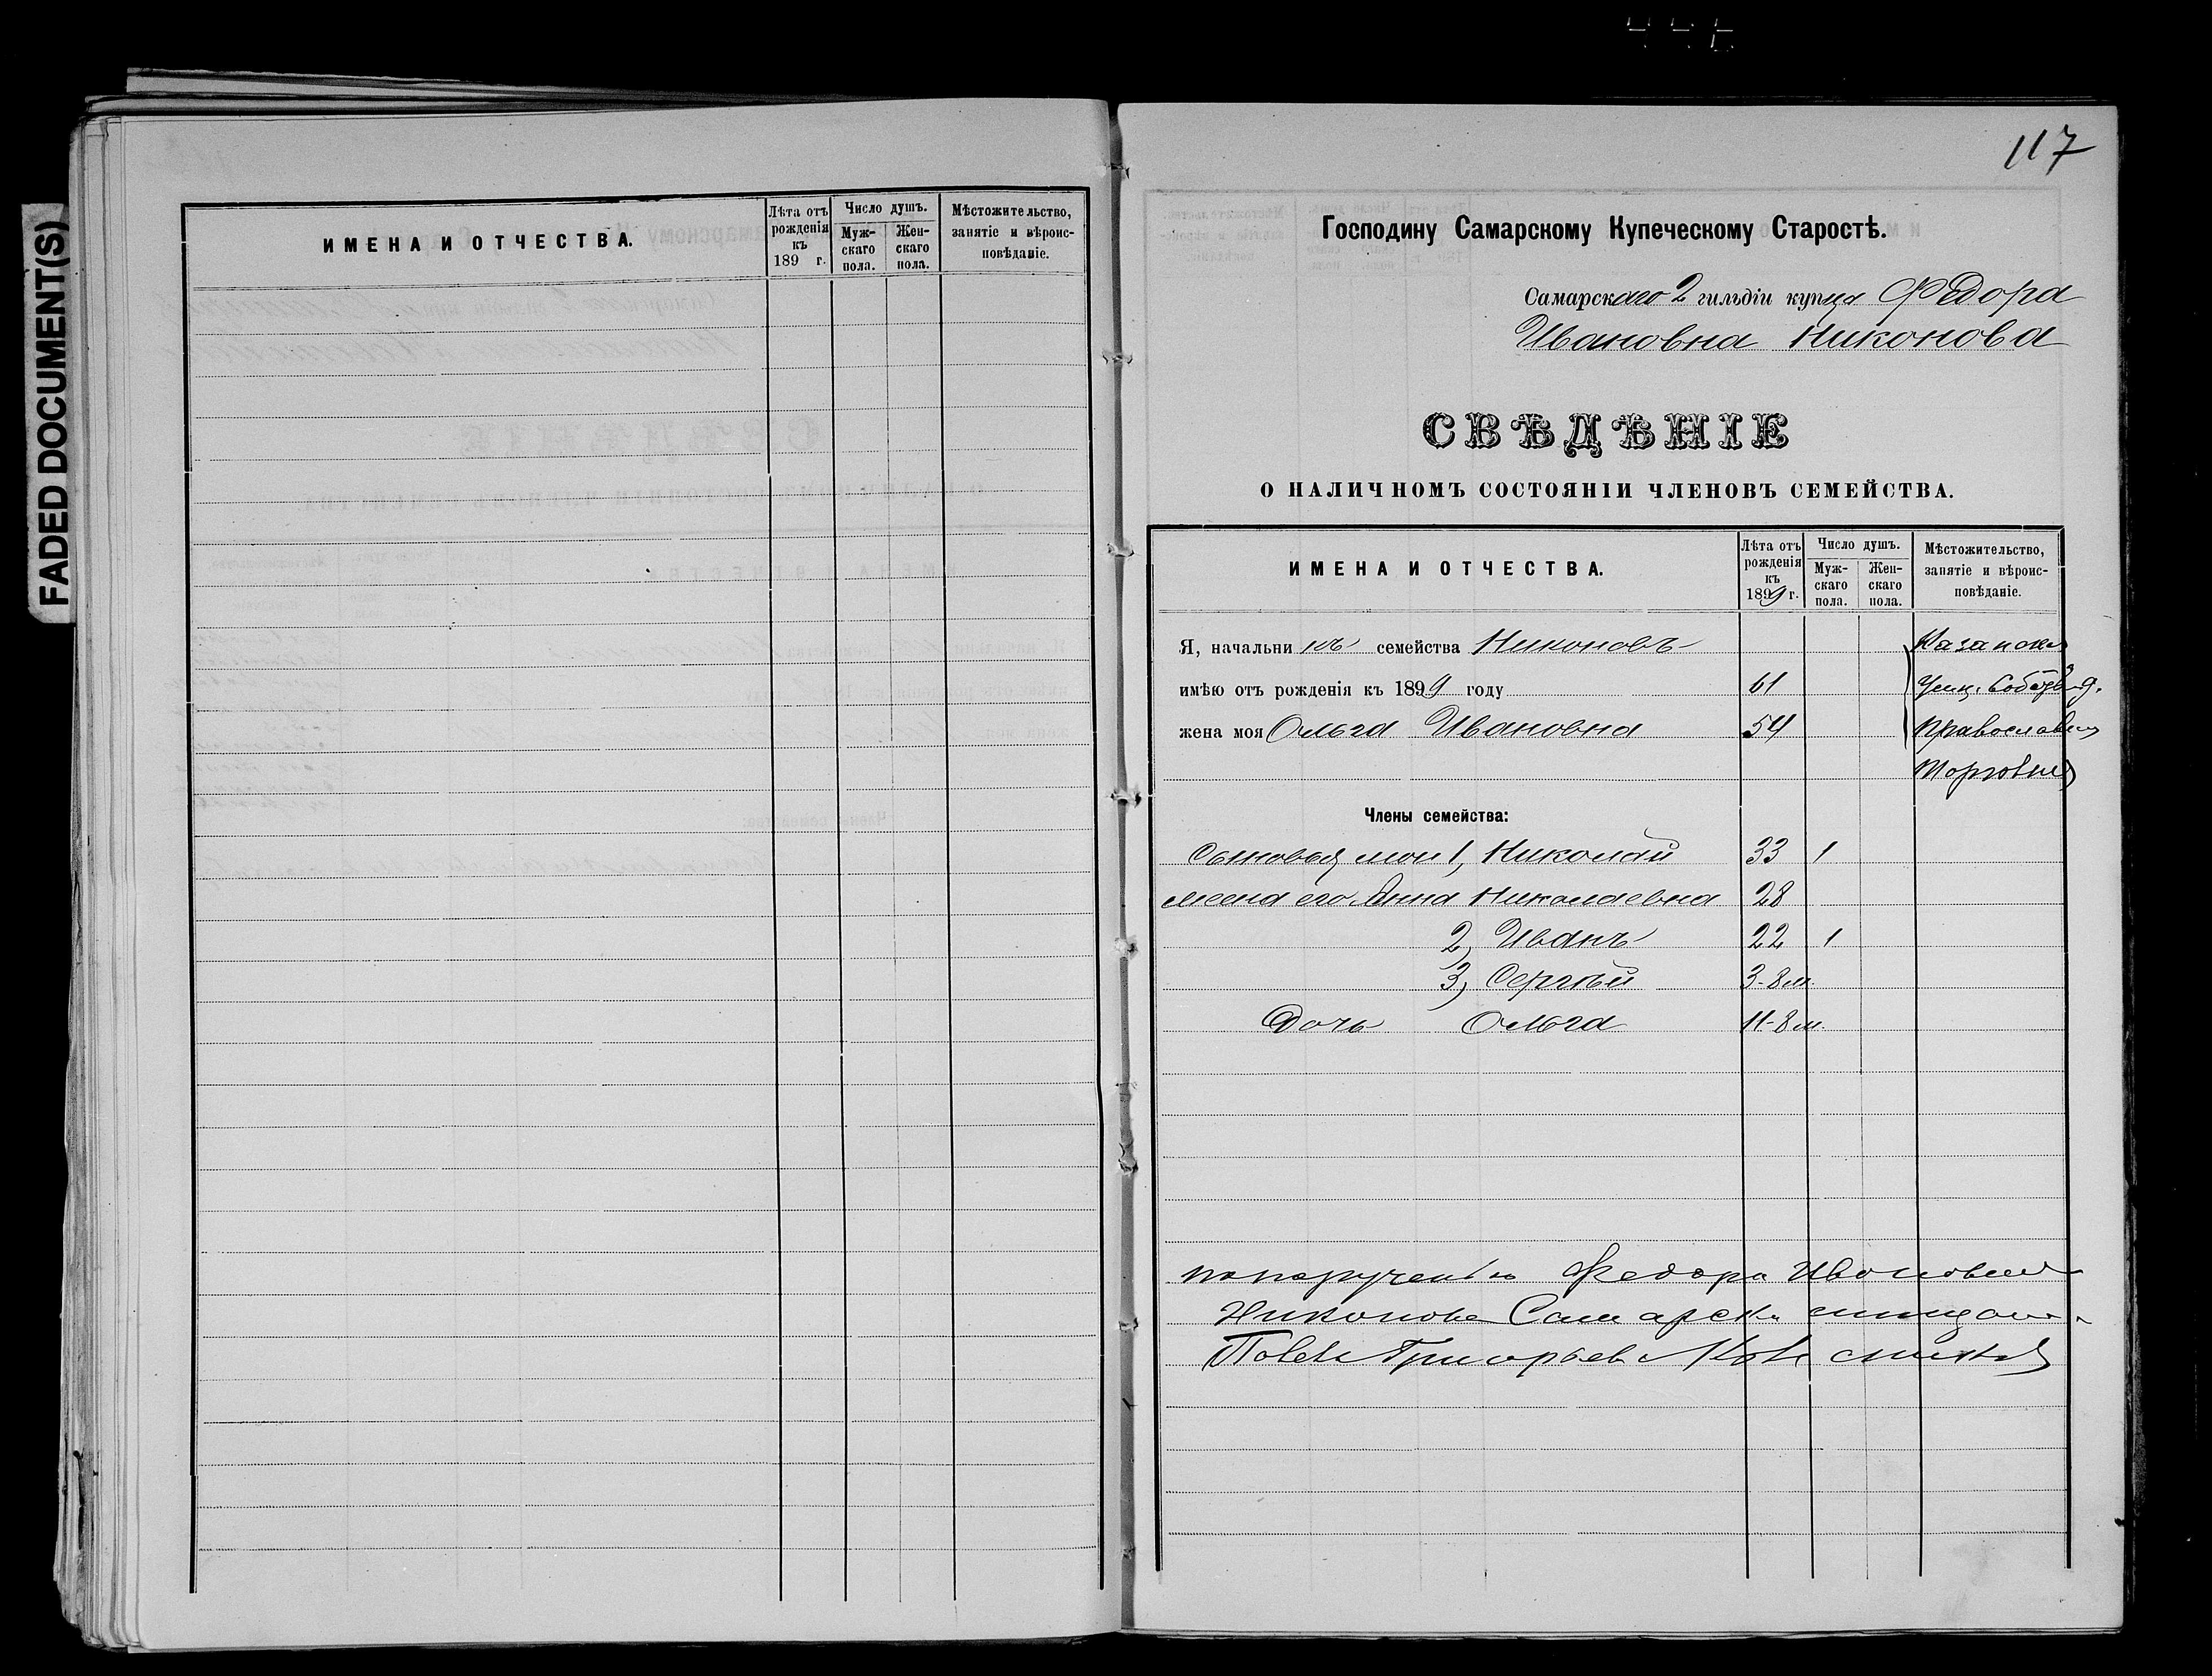 FADED DOCUMENT(S)
ИМЕНА И ОТЧЕСТВА.
Лѣта отъ рожденія къ 189 г.
Число душъ.
Мужскаго пола.
Женскаго пола.
Мѣстожительство, занятіе и вѣроисповѣданіе.
117
Господину Самарскому Купеческому Старостѣ.
Самарскаго 2 гильдіи купца Федора
Ивановна Никонова
СВѢДѢНІЕ
О НАЛИЧНОМЪ СОСТОЯНІИ ЧЛЕНОВЪ СЕМЕЙСТВА.
ИМЕНА И ОТЧЕСТВА.
Лѣта отъ рожденія къ 1899 г.
Число душъ.
Мужскаго пола.
Женскаго пола.
Мѣстожительство, занятіе и вѣроисповѣданіе.
Я, начальникъ семейства Никоновъ
имѣю отъ рожденія къ 1899 году 61
жена моя Ольга Ивановна 54
Члены семейства:
Сыновья мои 1, Николай 33 1
жена его Анна Николаевна 28
2, Иванъ 22 1
3, Сергѣй 3-8 м.
Дочь Ольга 11-8 м.
по порученію Федора
Никонова
Григорьев